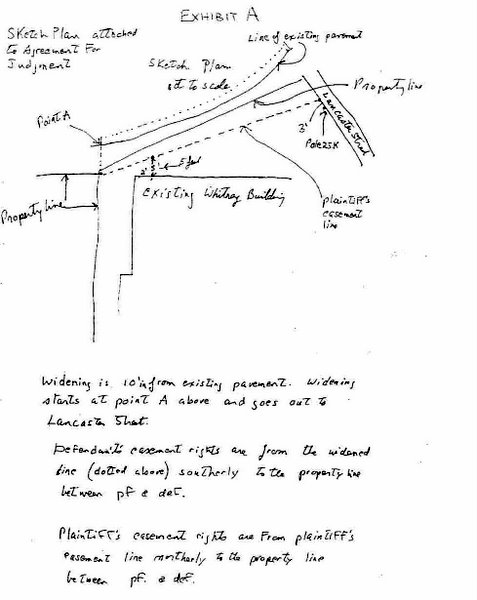 EXHIBIT A
Sketch Plan attached
to Agreement For
Judgment
Line of existing pavement
Sketch Plan
not to scale
Property line
Lancaster Street
Point A
3'
Pole 25K
5 feet
Existing Whitney Building
plaintiff's
easement
line
Property line
Widening is 10' in from existing pavement. Widening
starts at point A above and goes out to
Lancaster Street.
Defendant's easement rights are from the widened
line (dotted above) southerly to the property line
between pf & def.
Plaintiff's easement rights are From plaintiff's
easement line northerly to the property line
between pf. & def.